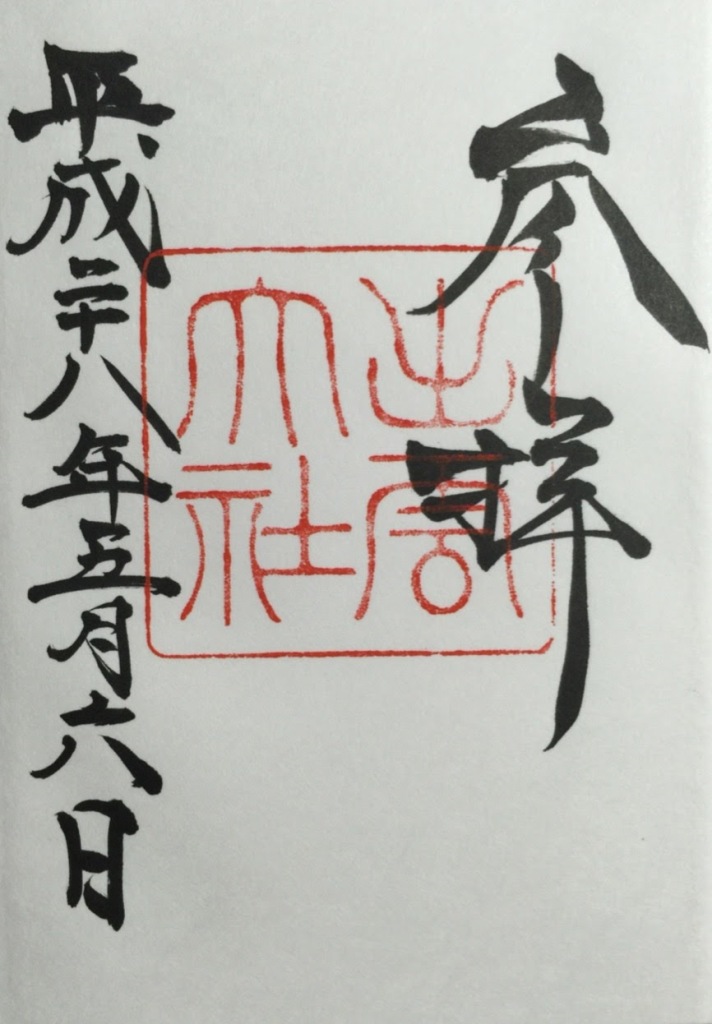 参拝
出雲
大社
平成二十八年五月六日